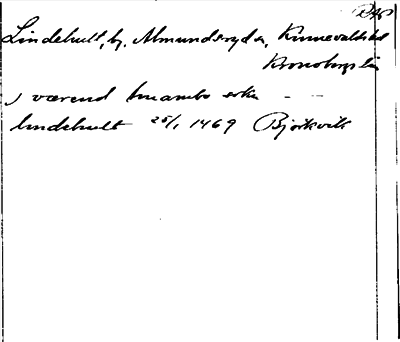 Lindehult, by, Almundsryd sn, Kinnevalds hd
Kronobergs län
j værend hwambo sokn - -
lindehult 25/1 1469 Björkvik